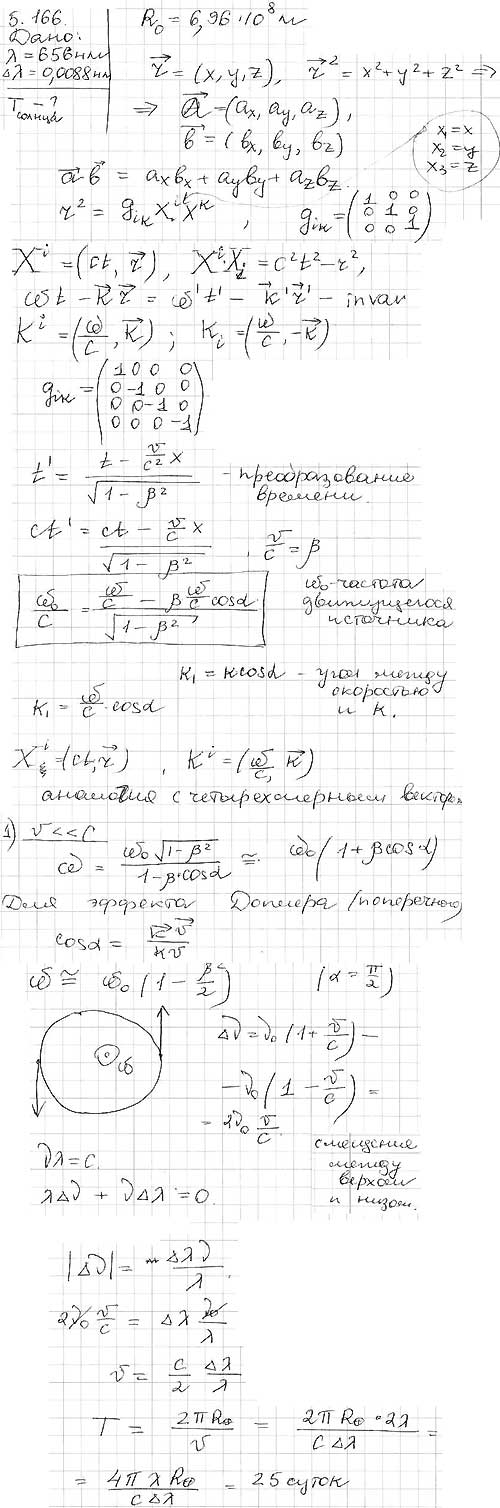 5.166.
R₀ = 6,96·10⁸ м
Дано:
λ = 656 нм
Δλ = 0,0088 нм
T солнца - ?
r⃗ = (x, y, z), r⃗² = x² + y² + z² ⇒
⇒ a⃗ = (ax, ay, az),
b⃗ = (bx, by, bz)
x₁ = x
x₂ = y
x₃ = z
a⃗b⃗ = axbx + ayby + azbz
r² = gik xⁱ xᵏ, gik = (1 0 0
0 1 0
0 0 1)
Xⁱ = (ct, r⃗), XⁱXᵢ = c²t² - r²,
ωt - k⃗r⃗ = ω't' - k⃗'r⃗' - invar
Kⁱ = (ω/c, k⃗); Kᵢ = (ω/c, -k⃗)
gik = (1 0 0 0
0 -1 0 0
0 0 -1 0
0 0 0 -1)
t' = (t - v/c² x) / √(1 - β²) - преобразование
времени.
ct' = (ct - v/c x) / √(1 - β²), v/c = β
ω₀/c = (ω/c - β ω/c cosα) / √(1 - β²)
ω₀ - частота
движущегося
источника
K₁ = k cosα - угол между
скоростью
и K.
K₁ = ω/c · cosα
Xⁱ = (ct, r⃗), Kⁱ = (ω/c, k⃗)
аналогия с четырехмерным вектором
1) v << c
ω = ω₀√(1 - β²) / (1 - β·cosα) ≅ ω₀(1 + βcosα)
Для эффекта Доплера (поперечного)
cosα = k⃗v⃗ / kv
ω ≅ ω₀(1 - β/2) (α = π/2)
ω
Δν = ν₀(1 + v/c) -
- ν₀(1 - v/c) =
= 2ν₀ v/c.
νλ = c.
λΔν + νΔλ = 0.
смещение
между
верхом
и низом.
|Δν| = Δλν / λ.
2ν₀ v/c = Δλ ν₀/λ
v = c/2 Δλ/λ
T = 2πR⊕ / v = 2πR⊕·2λ / cΔλ =
= 4πλR⊕ / cΔλ = 25 суток